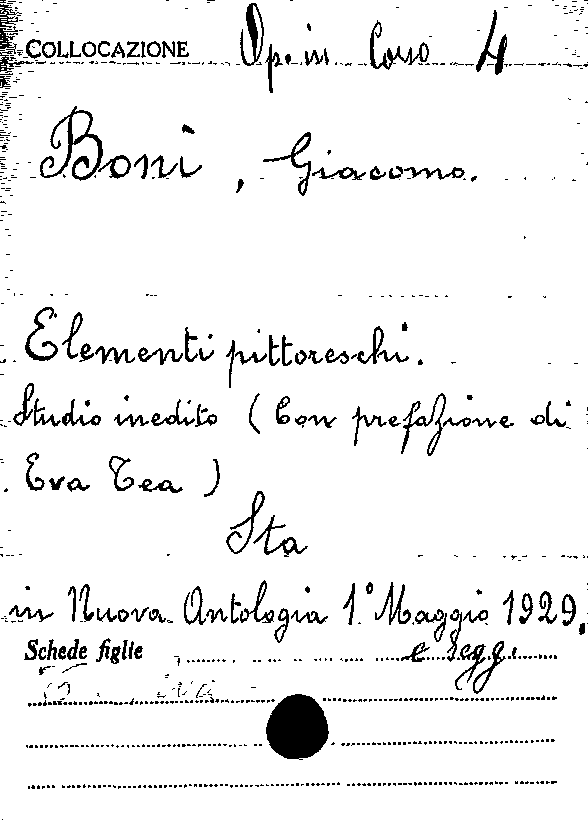 COLLOCAZIONE Op. in Corso 4
Boni, Giacomo.
Elementi pittoreschi.
Studio inedito (Con prefazione di
Eva Tea)
Sta
in Nuova Antologia 1° Maggio 1929.
Schede figlie e segg.